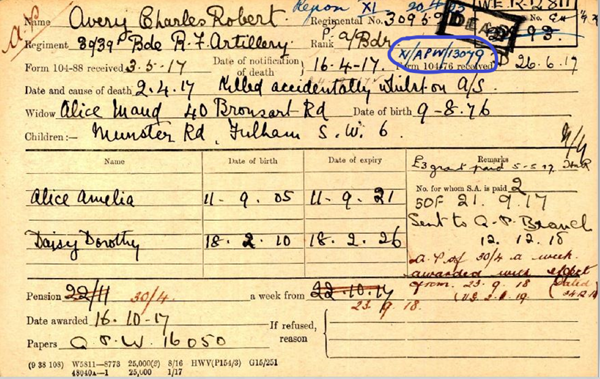 Name Avery Charles Robert. Regimental No. 3096
DEAD
Regiment B/39th Bde R.F. Artillery Rank A/Bdr
X/APW/13040
Form 104-88 received 3.5.17 Date of notification of death 16-4-17 Form 104-76 received 26.6.17
Date and cause of death 2.4.17 Killed accidentally whilst on A/S
Widow Alice Maud 40 Bronsart Rd Date of birth 9-8-76
Children:— Munster Rd, Fulham S.W. 6.
Name Date of birth Date of expiry Remarks
£3 grant paid 5-5-17
No. for whom S.A. is paid 2
Alice Amelia 11-9.05 11-9.21
SOF 21.9.17
Sent to A.P. Branch
Daisy Dorothy 18.2.10 18.2.26
12.12.18
A.P. of 30/4 a week
awarded with effect
from 23.9.18
Pension 22/11 30/4 a week from 22-10-17
23.9.18
Date awarded 16-10-17 If refused, reason
Papers A.P.W. 16050
(9 38 108) W5811—8773 25,000(2) 8/16 HWV(P154/3) G15/251
48040a—1 25,000 1/17